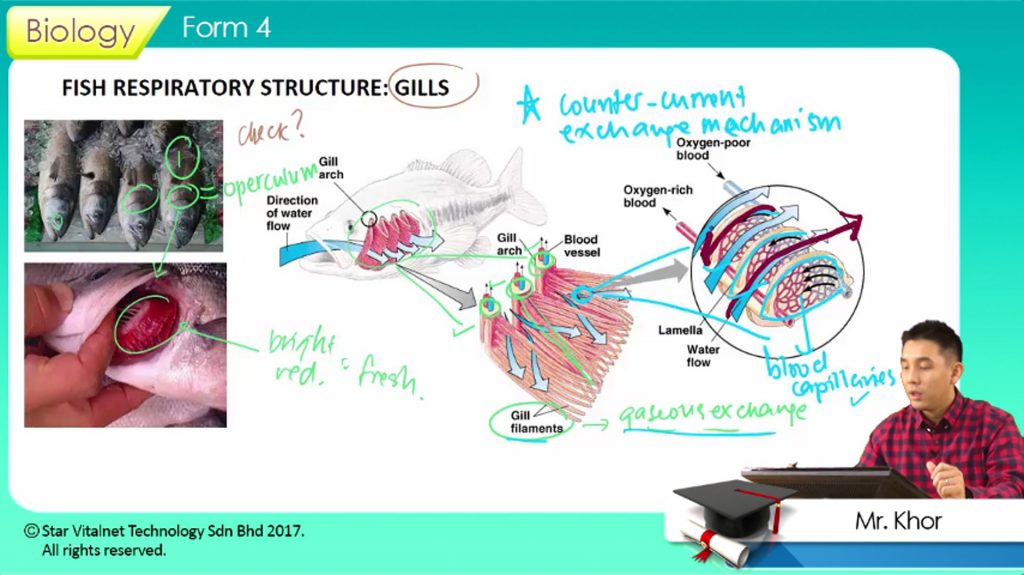 Biology
Form 4
FISH RESPIRATORY STRUCTURE: GILLS
check?
operculum
Counter-current
exchange mechanism
Gill
arch
Direction
of water
flow
Oxygen-poor
blood
Oxygen-rich
blood
Gill
arch
Blood
vessel
Lamella
Water
flow
blood
capillaries
bright
red. : fresh.
Gill
filaments
gaseous exchange
Mr. Khor
© Star Vitalnet Technology Sdn Bhd 2017.
All rights reserved.